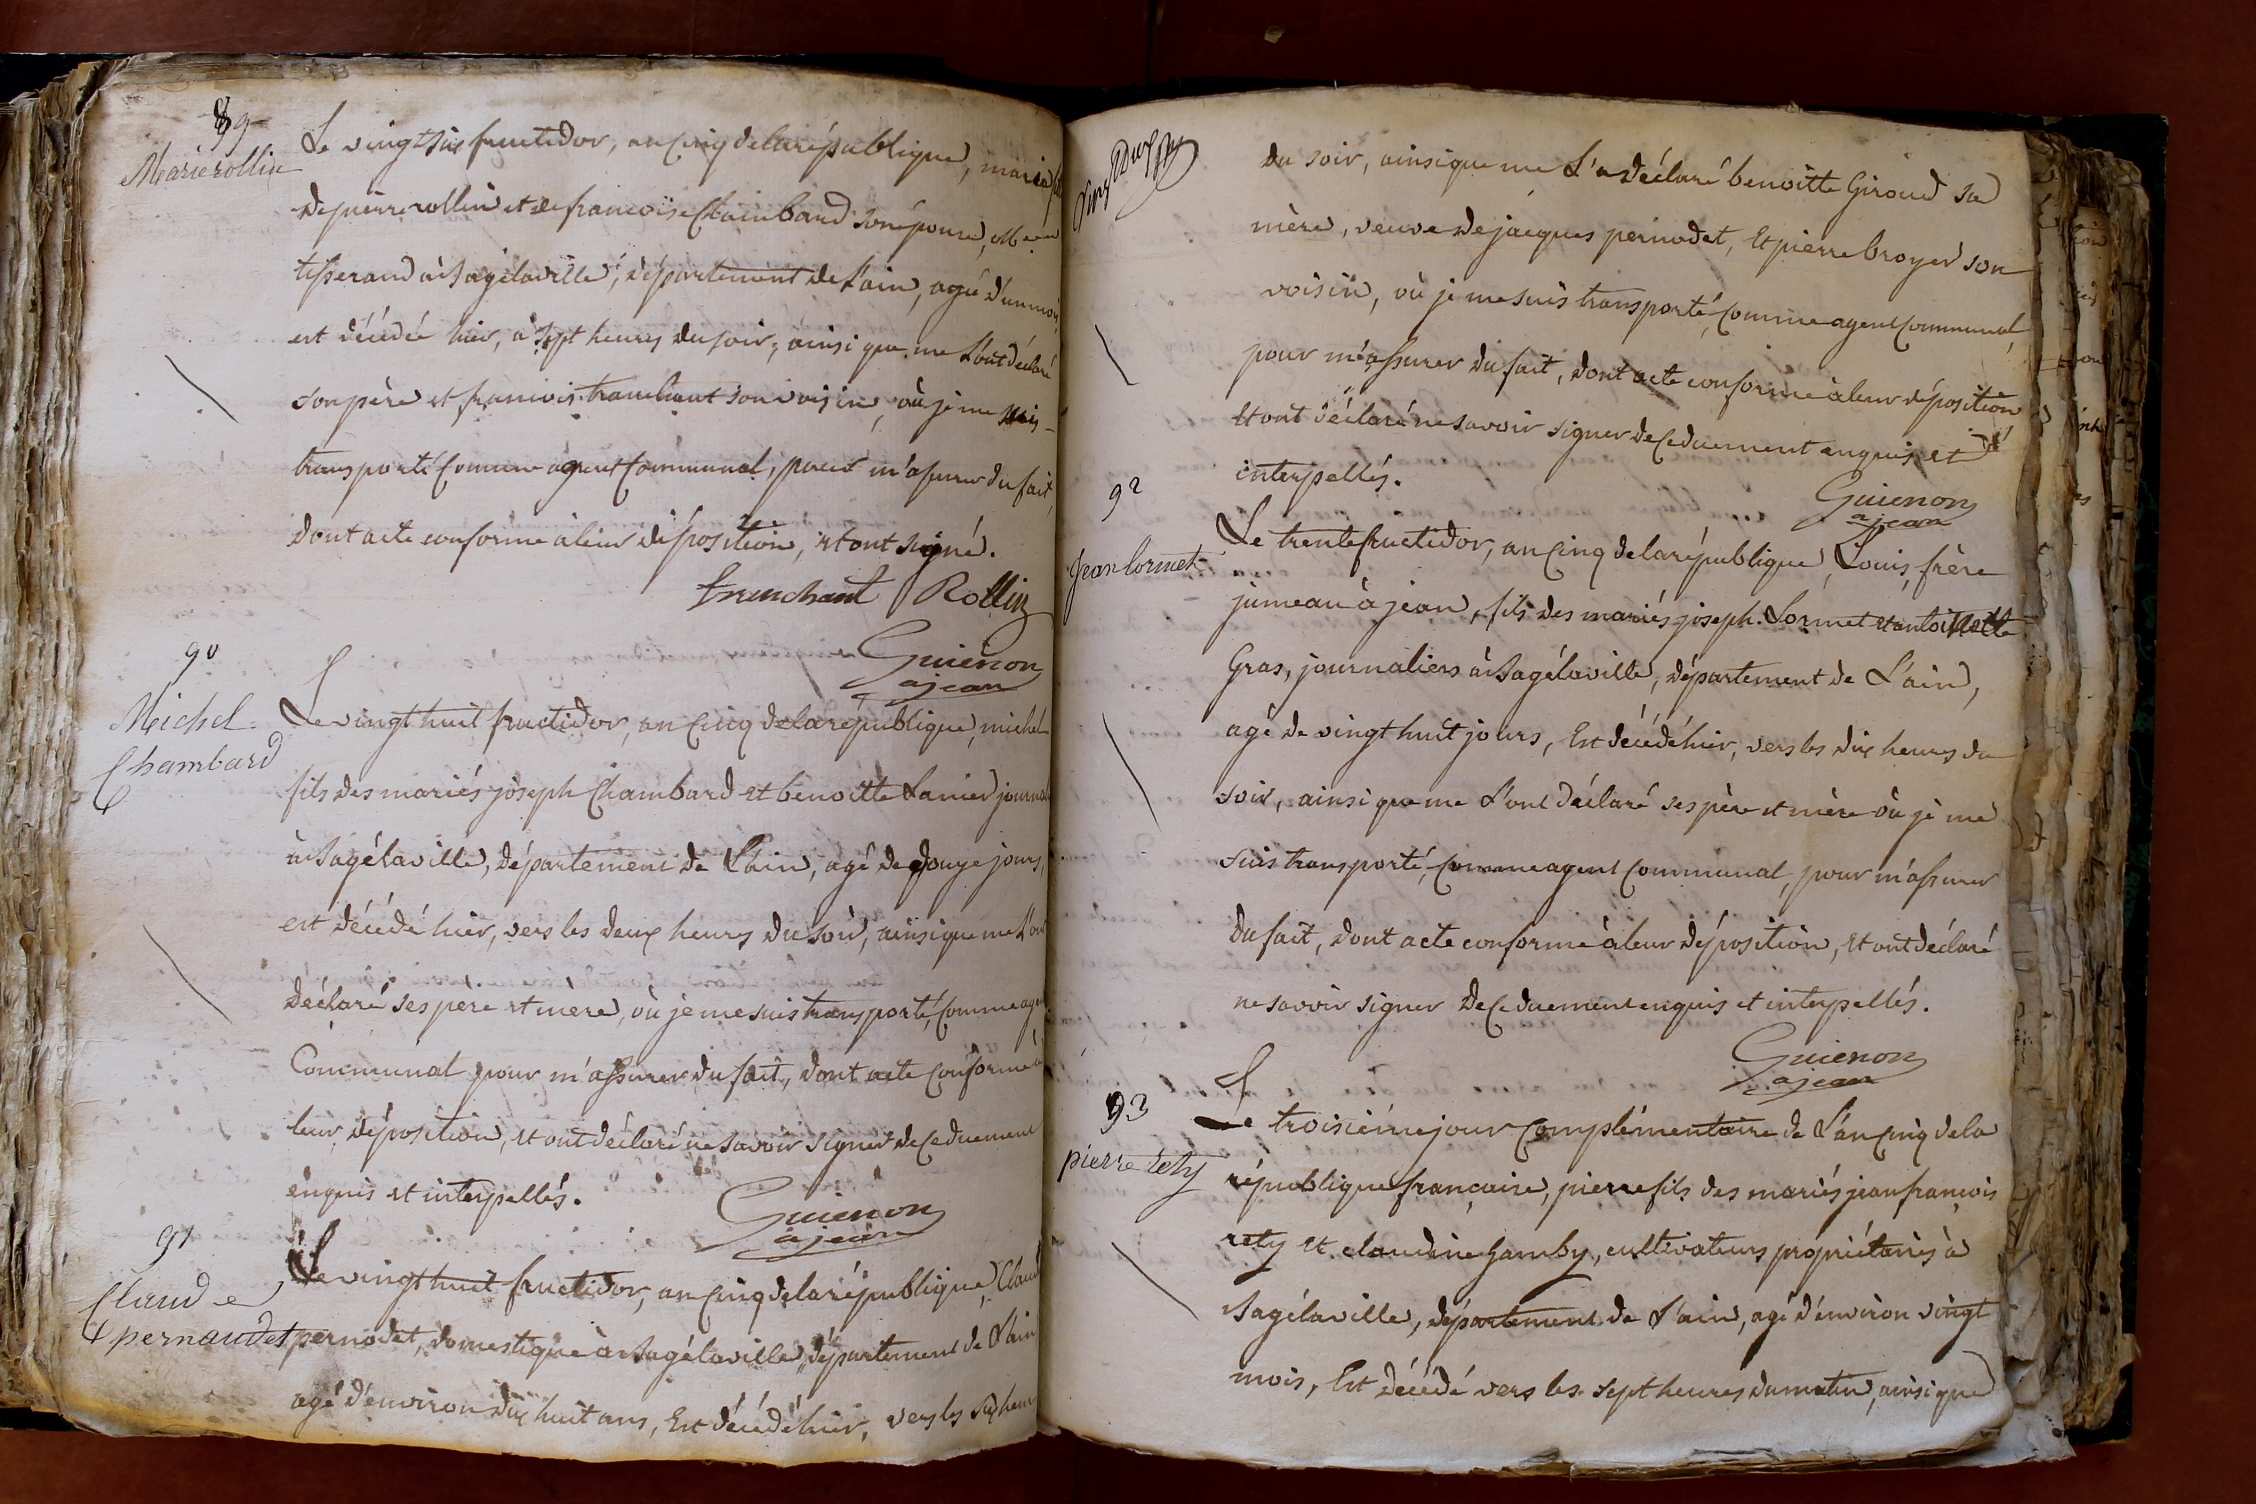 89
Marie rollin
Le vingt six fructidor, an cinq de la république, marie
de pierre rollin et de francoise Chambard son épouse,
tisserand à Bagélaville, département de l'ain, agée d'un mois,
est décédée hier, à sept heures du soir, ainsi que me l'ont déclaré
son père et francois tranchant son voisin, où je me suis
transporté comme agent communal, pour m'asurer du fait,
dont acte conforme à leur déposition, et ont signé.
trenchant Rollin
Guienon
ajean
90
Michel
Chambard
Le vingt huit fructidor, an cinq de la république, michel
fils des mariés joseph Chambard et benoitte Lanier journal
à Bagélaville, département de l'ain, agé de douze jours,
est décédé hier, vers les deux heures du soir, ainsi que me l'ont
déclaré ses père et mère, où je me suis transporté, comme agent
Communal pour m'assurer du fait, dont acte conforme à
leur déposition, et ont déclaré ne savoir signer de ce duement
enquis et interpellés.
Guienon
ajean
91
Claude
pernaudet
Le vingt huit fructidor, an cinq de la république, Claude
pernodet, domestique à Bagélaville, département de l'ain
agé d'environ dix huit ans, Est décédé hier, vers les six heures
du soir, ainsi que me l'a déclaré benoitte Giroud sa
mère, veuve de jacques pernodet, Et pierre broyer son
voisin, où je me suis transporté, comme agent communal,
pour m'assurer du fait, dont acte conforme à leur déposition
Et ont déclaré ne savoir signer de ce duement enquis et
interpellés.
Guienon
ajean
92
Jean lormet
Le trente fructidor, an cinq de la république, Louis, frère
jumeau à jean, fils des mariés joseph Lormet et antoinette
Gras, journaliers à Bagélaville, département de l'ain,
agé de vingt huit jours, Est décédé hier, vers les dix heures du
soir, ainsi que me l'ont déclaré ses père et mère où je me
suis transporté, comme agent communal, pour m'assurer
du fait, dont acte conforme à leur déposition, et ont déclaré
ne savoir signer de ce duement enquis et interpellés.
Guienon
ajean
93
pierre rety
Le troisième jour complémentaire de l'an cinq de la
république francaise, pierre fils des mariés jean francois
rety et claudine Gamby, cultivateurs propriétaires à
Bagélaville, département de l'ain, agé d'environ vingt
mois, Est décédé vers les sept heures du matin, ainsi que